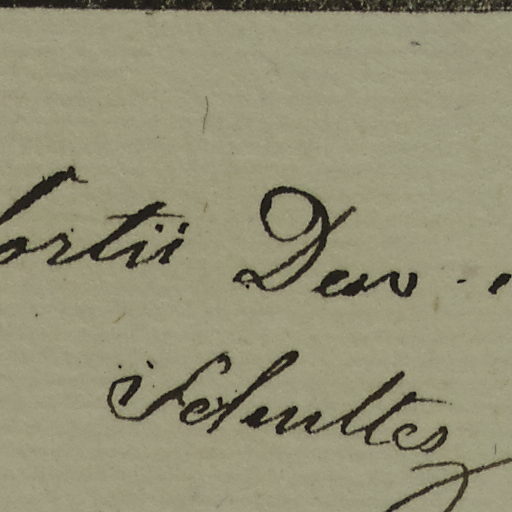 ortii Dev.
Schultes